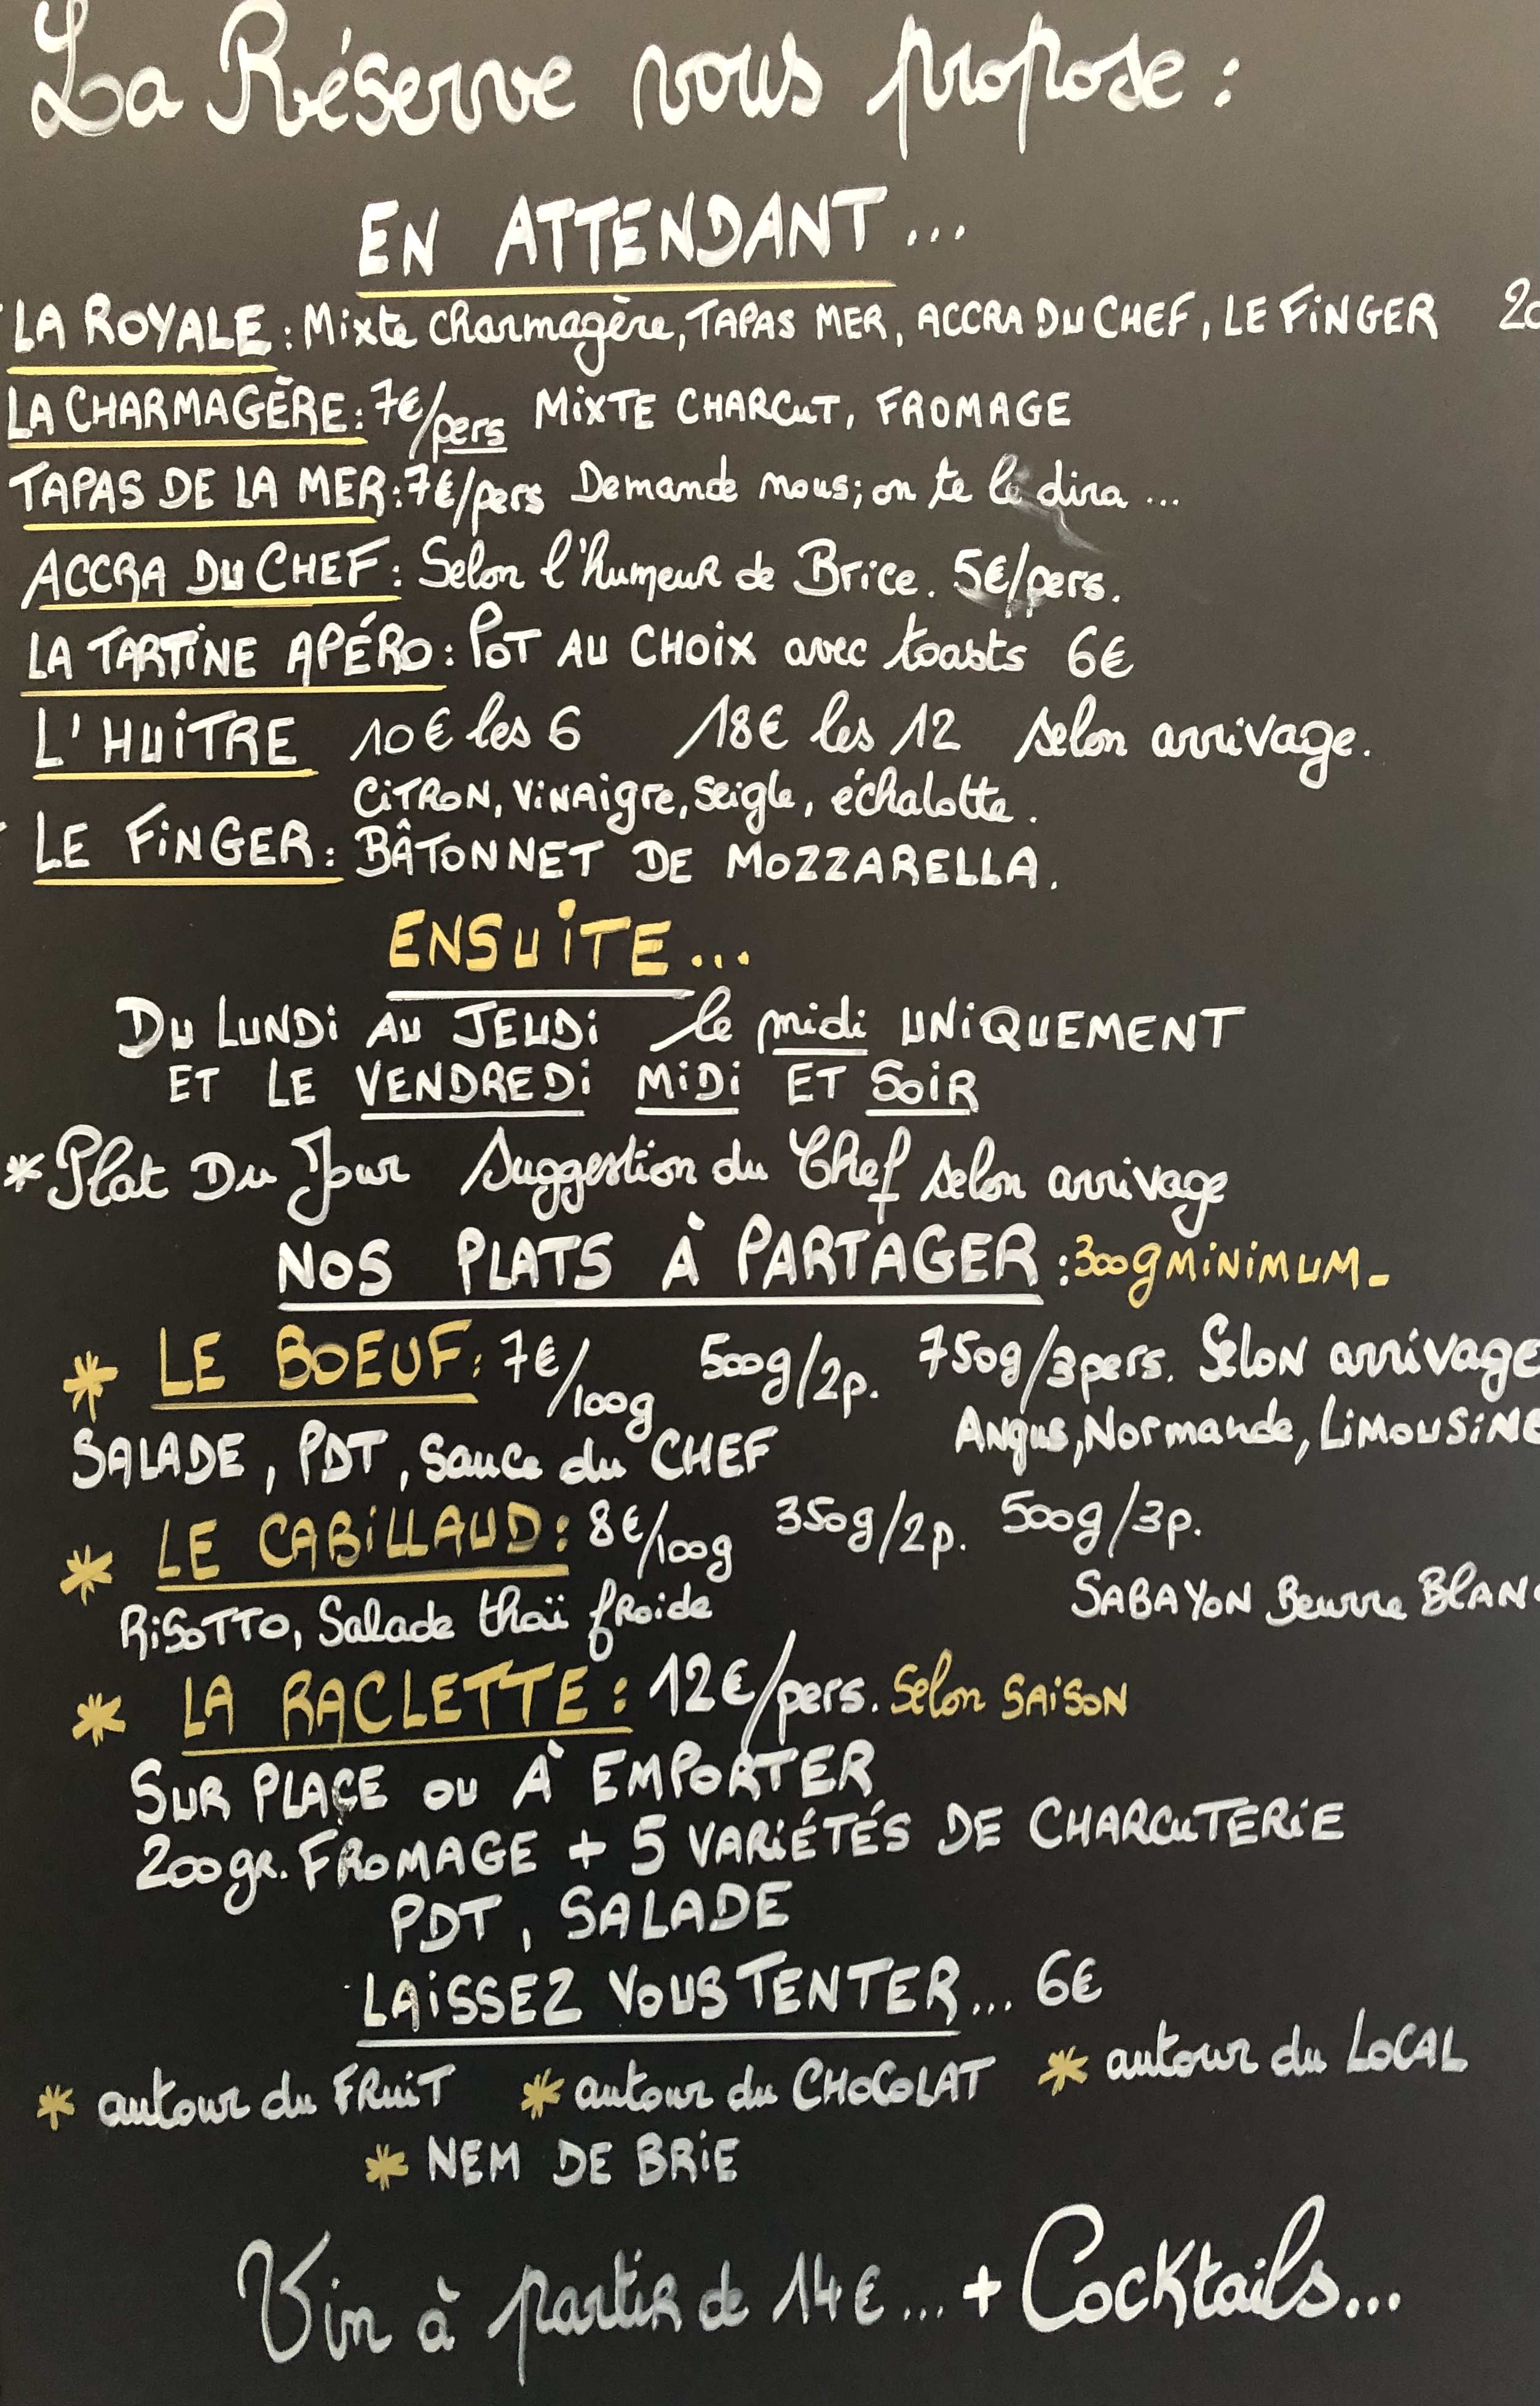 La Réserve vous propose :
EN ATTENDANT...
LA ROYALE : Mixte charmagère, TAPAS MER, ACCRA DU CHEF, LE FINGER
LA CHARMAGÈRE : 7€/pers MIXTE CHARCUT, FROMAGE
TAPAS DE LA MER : 7€/pers Demande nous ; on te le dira ...
ACCRA DU CHEF : Selon l'humeur de Brice. 5€/pers.
LA TARTINE APÉRO : POT AU CHOIX avec toasts 6€
L'HUITRE 10€ les 6 18€ les 12 selon arrivage.
CITRON, VINAIgre, Seigle, échalotte.
LE FINGER : BÂTONNET DE MOZZARELLA.
ENSUITE...
DU LUNDI AU JEUDI le midi UNIQUEMENT
ET LE VENDREDI MIDI ET SOIR
*Plat Du Jour Suggestion du Chef selon arrivage
NOS PLATS À PARTAGER : 300g MINIMUM-
* LE BOEUF : 7€/100g 500g/2p. 750g/3pers. Selon arrivage
Angus, Normande, LIMOUSINE
SALADE, PDT, Sauce du CHEF
* LE CABILLAUD : 8€/100g 350g/2p. 500g/3p.
SABAYON Beurre BLANC
RISOTTO, Salade thaï froide
* LA RACLETTE : 12€/pers. Selon SAISON
SUR PLACE OU À EMPORTER
200gr. FROMAGE + 5 VARIÉTÉS DE CHARCUTERIE
PDT, SALADE
LAISSEZ VOUS TENTER... 6€
* autour du FRUIT * autour du CHOCOLAT * autour du LOCAL
* NEM DE BRIE
Vin à partir de 14€... + Cocktails...